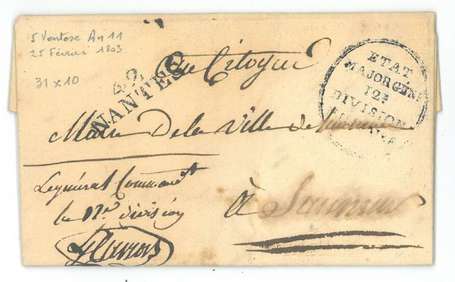 5 Ventose An 11
25 Février 1803
31 x 10
ETAT
MAJOR GEN
12e
DIVISION
NANTES
Au Citoyen
Maire de la Ville de
Le général Command
la 12e division
à Saumur